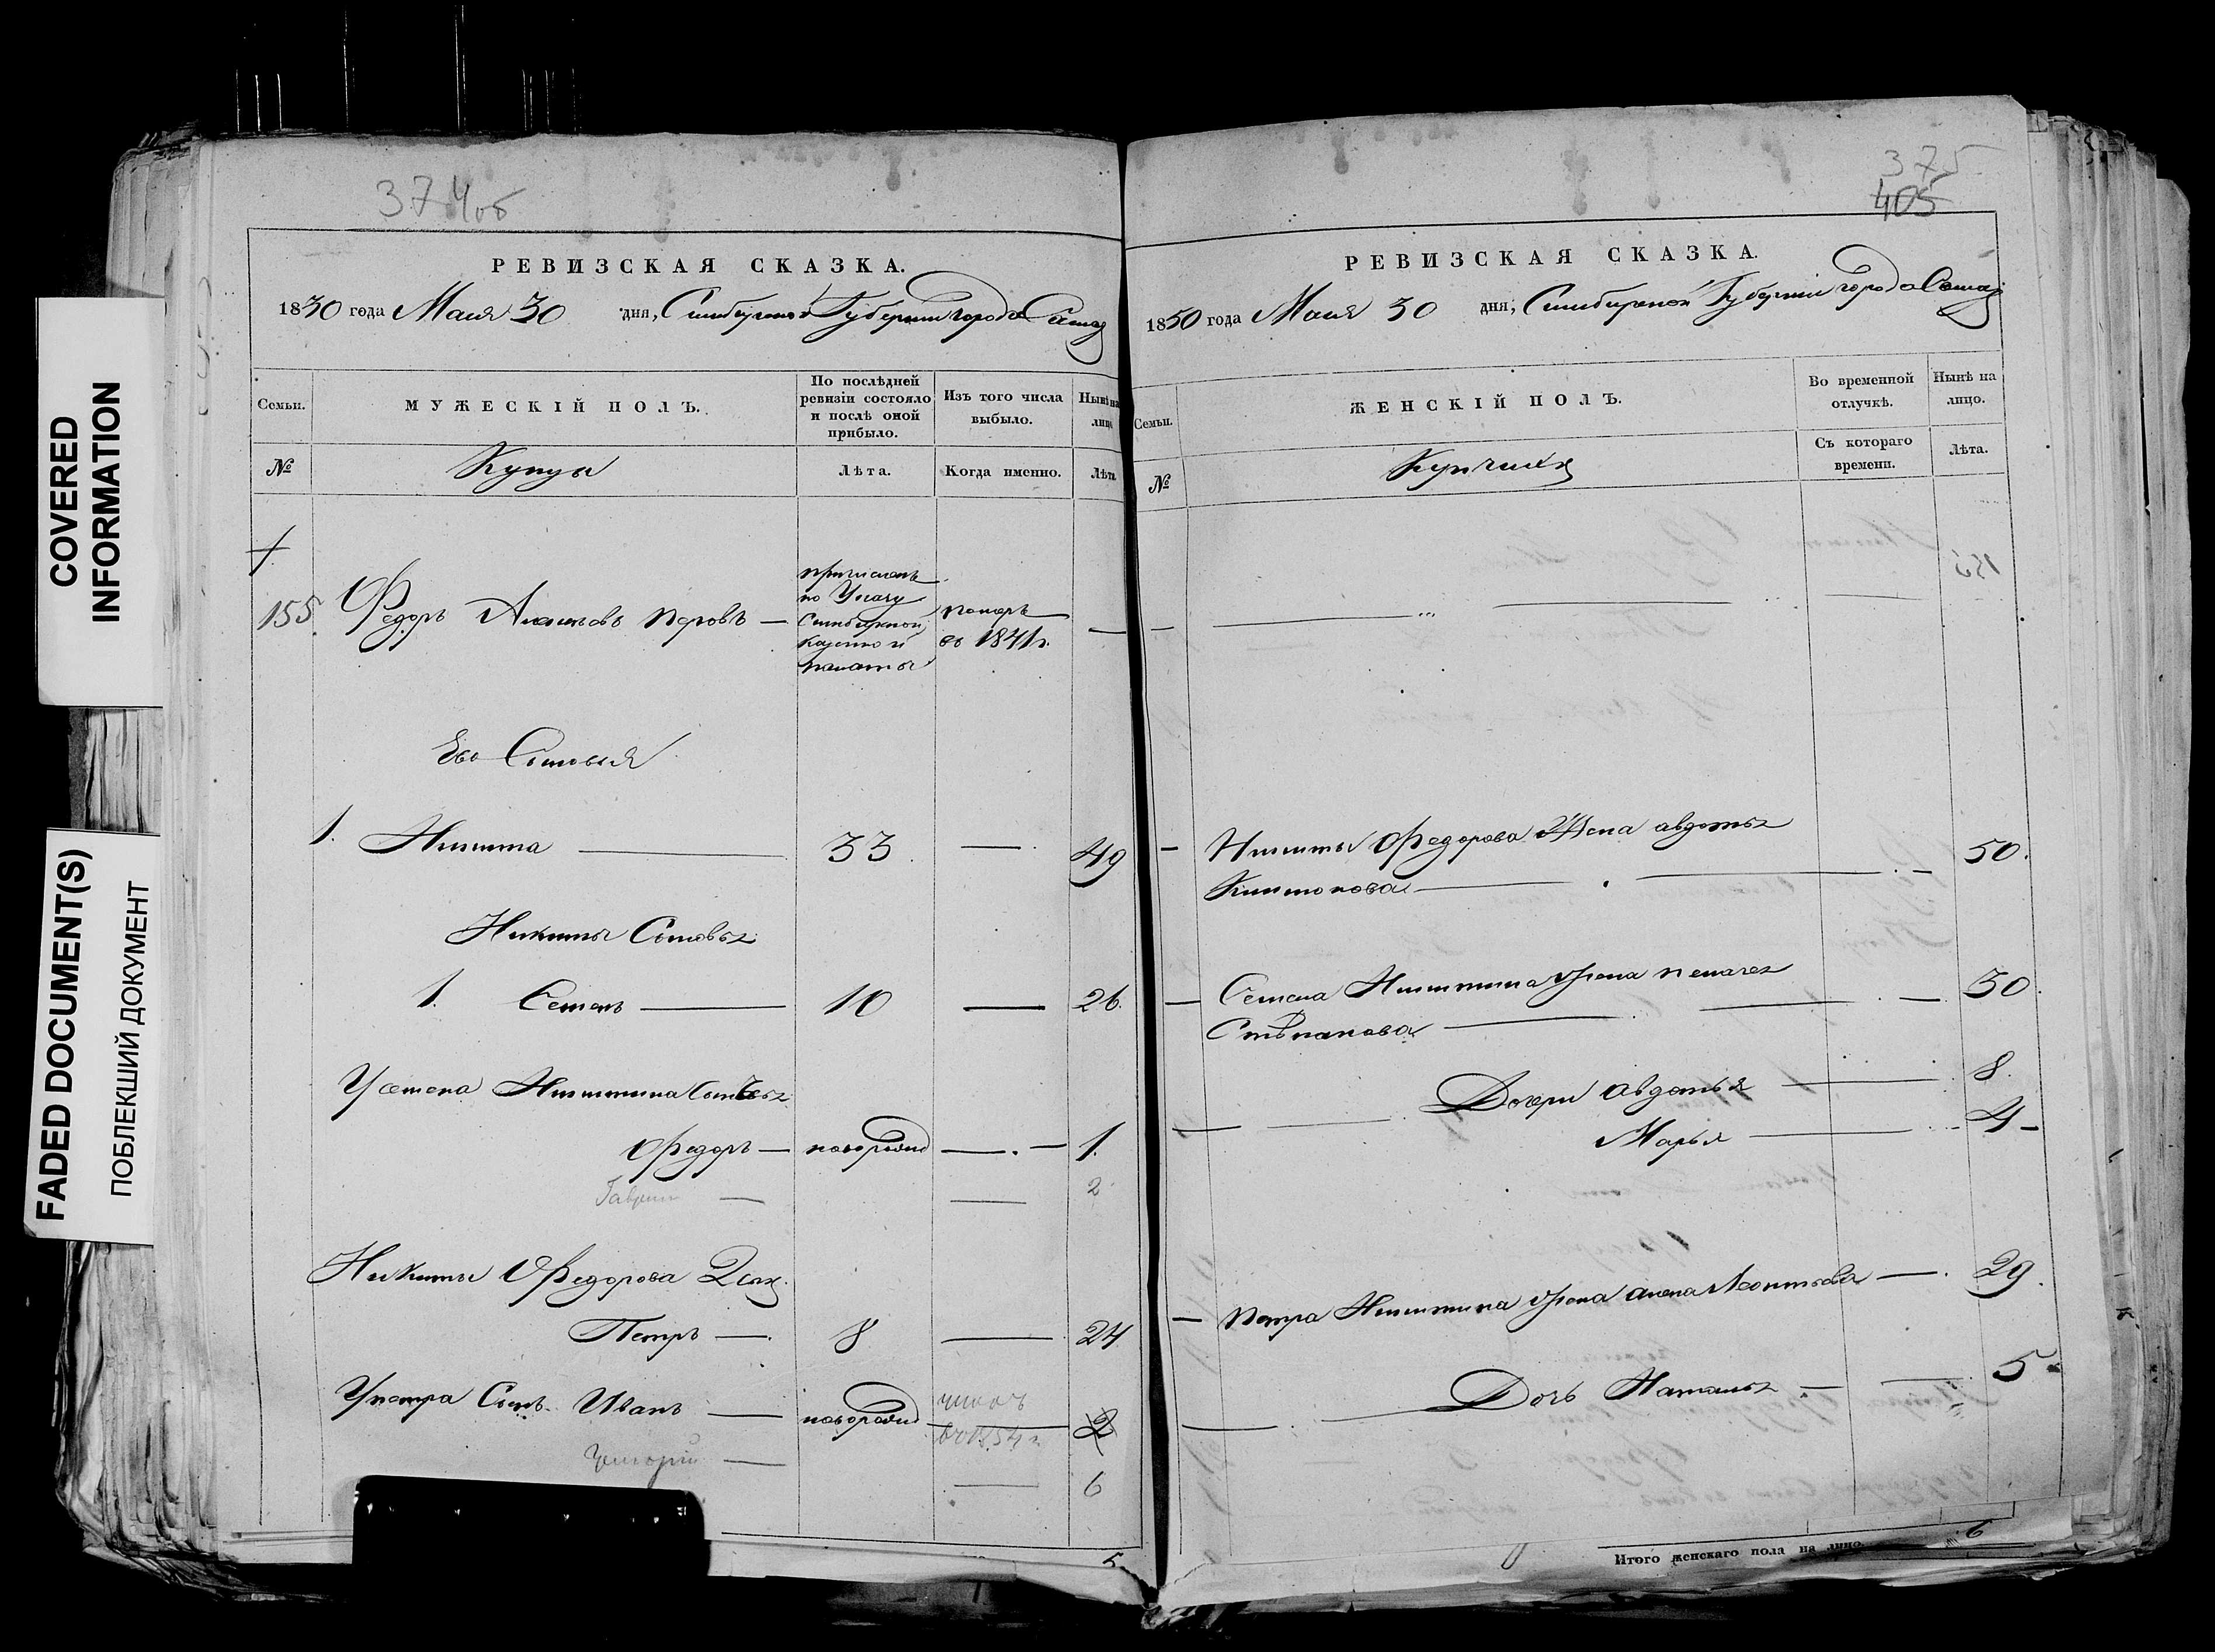 COVERED
INFORMATION
FADED DOCUMENT(S)
ПОБЛЕКШИЙ ДОКУМЕНТ
374об
РЕВИЗСКАЯ СКАЗКА.
1850 года Маия 30 дня, Симбирской Губернии города
Семьи.
МУЖЕСКІЙ ПОЛЪ.
По послѣдней
ревизіи состояло
и послѣ оной
прибыло.
Изъ того числа
выбыло.
Нынѣ на
лицо
№
Купцы
Лѣта.
Когда именно.
Лѣта
155 Федоръ Перовъ —
причисленъ
по Указу
Симбирской
казенной
палаты
померъ
въ 1841 г.
—
Ево Сыновья
1. Никита — 33. — 49
Никиты Сыновья
1. Семенъ — 10 — 26.
У Семена Никитина Сыновья
Федоръ — новорожд — 1.
Гаврил — — 2
Никиты Федорова 2 сын.
Петръ — 8 — 24
У Петра Сынъ Иванъ — новорожд
въ 1854 г
2
Григорий — — 6
5
375
405
РЕВИЗСКАЯ СКАЗКА.
1850 года Маия 30 дня, Симбирской Губернии города
Семьи.
ЖЕНСКІЙ ПОЛЪ.
Во временной
отлучкѣ.
Нынѣ на
лицо.
№
Купчихи
Съ котораго
времени.
Лѣта.
— Никиты Федорова Жена авдотья
50.
— Семена Никитина жена пелагея
Стѣпанова — 30.
Дочери авдотья — 8.
Марья — 4 –
— Петра Никитина жена Леонтьева — 29.
Дочь Наталья — 5
Итого женскаго пола на лицо 6